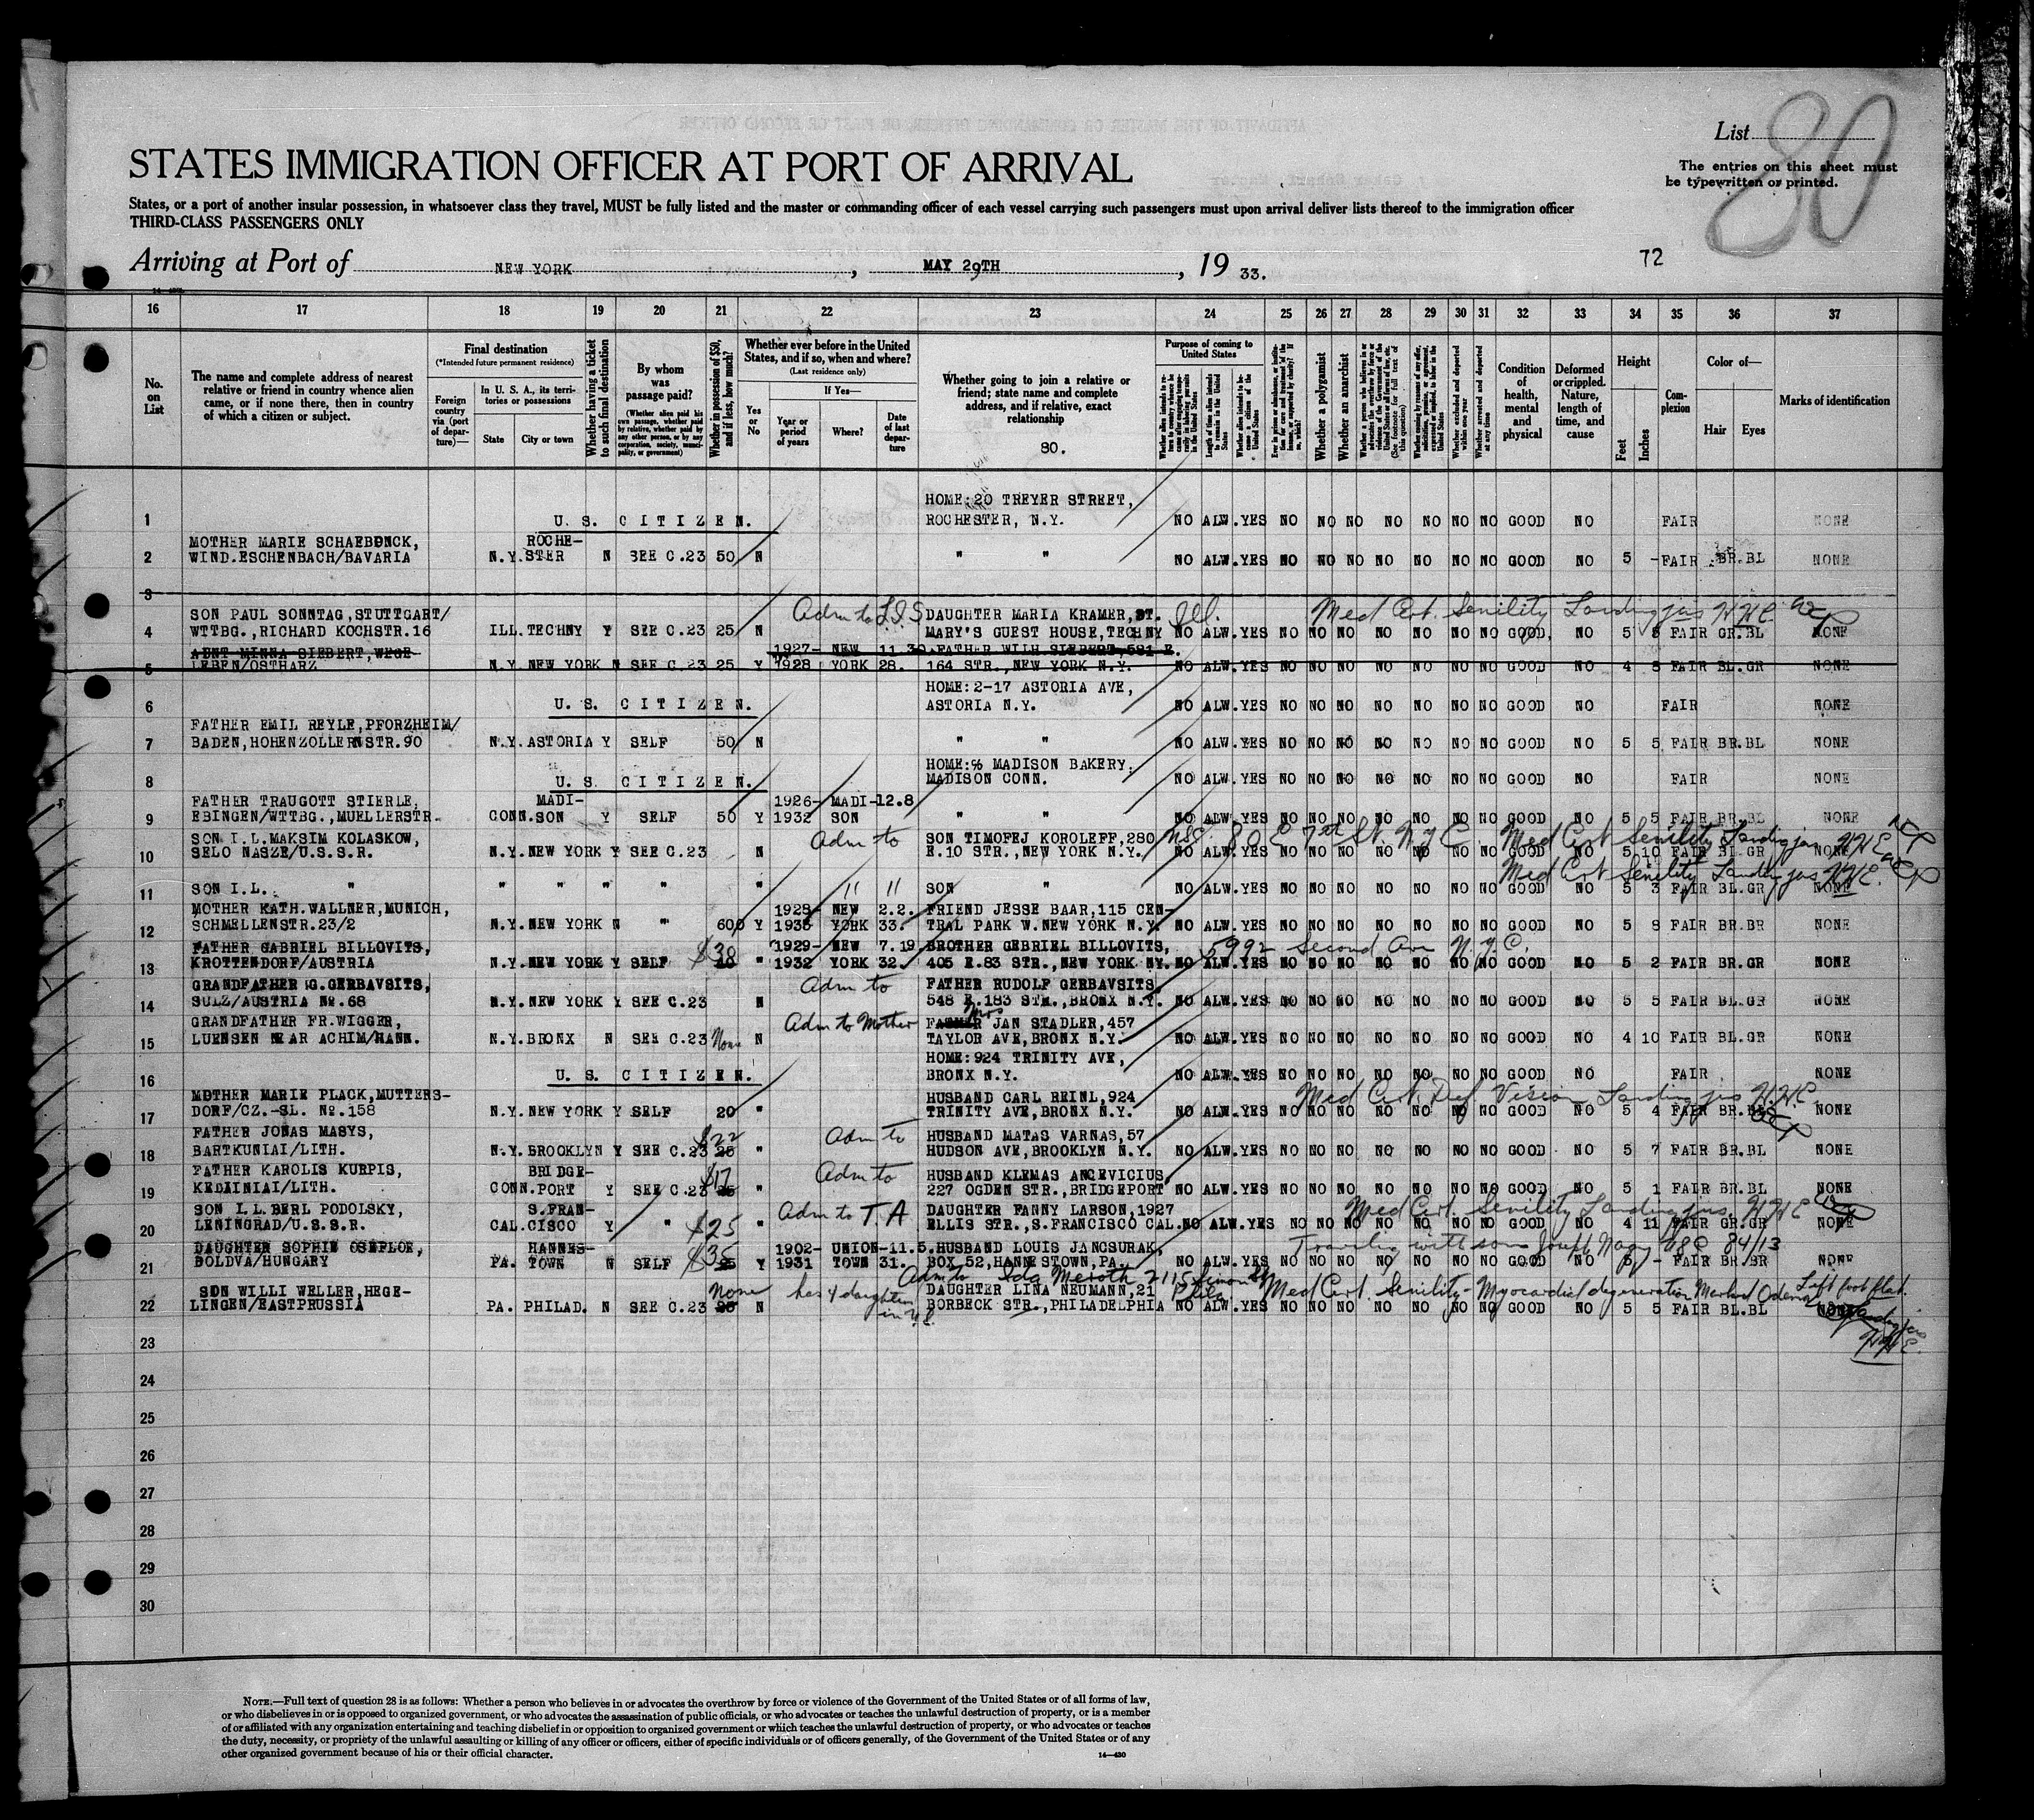 List 80
The entries on this sheet must
be typewritten or printed.
STATES IMMIGRATION OFFICER AT PORT OF ARRIVAL
States, or a port of another insular possession, in whatsoever class they travel, MUST be fully listed and the master or commanding officer of each vessel carrying such passengers must upon arrival deliver lists thereof to the immigration officer
THIRD-CLASS PASSENGERS ONLY
Arriving at Port of NEW YORK, MAY 29TH, 19 33.
72
16 17 18 19 20 21 22 23 24 25 26 27 28 29 30 31 32 33 34 35 36 37
No. on List
The name and complete address of nearest relative or friend in country whence alien came, or if none there, then in country of which a citizen or subject.
Final destination
(*Intended future permanent residence)
Foreign country via (port of departure)—
In U. S. A., its territories or possessions
State City or town
Whether having a ticket to such final destination
By whom was passage paid?
(Whether alien paid his own passage, whether paid by relative, whether paid by any other person, or by any corporation, society, municipality, or government)
Whether in possession of $50, and if less, how much?
Whether ever before in the United States, and if so, when and where?
(Last residence only)
Yes or No
If Yes—
Year or period of years
Where?
Date of last departure
Whether going to join a relative or friend; state name and complete address, and if relative, exact relationship
80.
Purpose of coming to United States
Whether a polygamist
Whether an anarchist
Condition of health, mental and physical
Deformed or crippled. Nature, length of time, and cause
Height
Feet Inches
Complexion
Color of—
Hair Eyes
Marks of identification
HOME:20 TREYER STREET,
1 U. S. CITIZEN. ROCHESTER, N.Y. NO ALW.YES NO NO NO NO NO NO NO GOOD NO FAIR NONE
MOTHER MARIE SCHAEBDNCK, ROCHE-
2 WIND.ESCHENBACH/BAVARIA N.Y.STER N SEE C.23 50 N " " NO ALW.YES NO NO NO NO NO NO NO GOOD NO 5 - FAIR BR.BL NONE
3
SON PAUL SONNTAG,STUTTGART/ Adm to DAUGHTER MARIA KRAMER,ST. Ill. Med Cert Senility Landing
4 WTTBG.,RICHARD KOCHSTR.16 ILL.TECHNY Y SEE C.23 25 N MARY'S GUEST HOUSE,TECHNY NO ALW.YES NO NO NO NO NO NO NO GOOD NO 5 5 FAIR GR.BL NONE
AUNT MINNA SIEBERT,WEGE- 1927- NEW 11.30 FATHER WILH.SIEBERT,581 E.
5 LEBEN/OSTHARZ N.Y.NEW YORK N SEE C.23 25 Y 1928 YORK 28. 164 STR.,NEW YORK N.Y. NO ALW.YES NO NO NO NO NO NO NO GOOD NO 4 8 FAIR BL.GR NONE
HOME:2-17 ASTORIA AVE,
6 U. S. CITIZEN. ASTORIA N.Y. NO ALW.YES NO NO NO NO NO NO NO GOOD NO FAIR NONE
FATHER EMIL REYLE,PFORZHEIM/
7 BADEN,HOHENZOLLERNSTR.90 N.Y.ASTORIA Y SELF 50 N " " NO ALW.YES NO NO NO NO NO NO NO GOOD NO 5 5 FAIR BR.BL NONE
HOME:% MADISON BAKERY,
8 U. S. CITIZEN. MADISON CONN. NO ALW.YES NO NO NO NO NO NO NO GOOD NO FAIR NONE
FATHER TRAUGOTT STIERLE, MADI- 1926- MADI-12.8
9 EBINGEN/WTTBG.,MUELLERSTR. CONN.SON Y SELF 50 Y 1932 SON " " NO ALW.YES NO NO NO NO NO NO NO GOOD NO 5 5 FAIR BR.BL NONE
SON I.L.MAKSIM KOLASKOW, Adm to SON TIMOFEJ KOROLEFF,280 80 E 7th St. N.Y.C. Med Cert Senility Landing
10 SELO NASZE/U.S.S.R. N.Y.NEW YORK Y SEE C.23 N E.10 STR.,NEW YORK N.Y. NO ALW.YES NO NO NO NO NO NO NO GOOD NO 5 10 FAIR BL.GR NONE
Med Cert Senility Landing
11 SON I.L. " " " " " " " " SON " NO ALW.YES NO NO NO NO NO NO NO GOOD NO 5 3 FAIR BL.GR NONE
MOTHER KATH.WALLNER,MUNICH, 1928- NEW 2.2. FRIEND JESSE BAAR,115 CEN-
12 SCHMELLENSTR.23/2 N.Y.NEW YORK N " 600 Y 1933 YORK 33. TRAL PARK W.NEW YORK N.Y. NO ALW.YES NO NO NO NO NO NO NO GOOD NO 5 8 FAIR BR.BR NONE
FATHER GABRIEL BILLOVITS, $38 1929- NEW 7.19 BROTHER GEBRIEL BILLOVITS, 5992 Second Ave N.Y.C.
13 KROTTENDORF/AUSTRIA N.Y.NEW YORK Y SELF " 1932 YORK 32. 405 E.83 STR.,NEW YORK NY. NO ALW.YES NO NO NO NO NO NO NO GOOD NO 5 2 FAIR BR.GR NONE
GRANDFATHER G.GERBAVSITS, Adm to FATHER RUDOLF GERBAVSITS
14 SULZ/AUSTRIA No.68 N.Y.NEW YORK Y SEE C.23 N 548 E.183 STR.,BRONX N.Y. NO ALW.YES NO NO NO NO NO NO NO GOOD NO 5 5 FAIR BL.GR NONE
GRANDFATHER FR.WIGGER, Adm to Mother Mrs JAN STADLER,457
15 LUENSEN NEAR ACHIM/HANN. N.Y.BRONX N SEE C.23 None N TAYLOR AVE,BRONX N.Y. NO ALW.YES NO NO NO NO NO NO NO GOOD NO 4 10 FAIR BL.GR NONE
HOME:924 TRINITY AVE,
16 U. S. CITIZEN. BRONX N.Y. NO ALW.YES NO NO NO NO NO NO NO GOOD NO FAIR NONE
MOTHER MARIE PLACK,MUTTERS- HUSBAND CARL REINL,924 Med Cert. Def Vision Landing
17 DORF/CZ.-SL. No.158 N.Y.NEW YORK Y SELF 20 " TRINITY AVE,BRONX N.Y. NO ALW.YES NO NO NO NO NO NO NO GOOD NO 5 4 FAIR BR. NONE
FATHER JONAS MASYS, $22 Adm to HUSBAND MATAS VARNAS,57
18 BARTKUNIAI/LITH. N.Y.BROOKLYN Y SEE C.23 25 " HUDSON AVE,BROOKLYN N.Y. NO ALW.YES NO NO NO NO NO NO NO GOOD NO 5 7 FAIR BR.BL NONE
FATHER KAROLIS KURPIS, BRIDGE- $17 Adm to HUSBAND KLEMAS ANCEVICIUS,
19 KEDAINIAI/LITH. CONN.PORT Y SEE C.23 " 227 OGDEN STR.,BRIDGEPORT NO ALW.YES NO NO NO NO NO NO NO GOOD NO 5 1 FAIR BR.BL NONE
SON I.L.BERL PODOLSKY, S.FRAN- Adm to T.A DAUGHTER FANNY LARSON,1927 Med Cert. Senility Landing
20 LENINGRAD/U.S.S.R. CAL.CISCO Y " $25 " ELLIS STR.,S.FRANCISCO CAL. NO ALW.YES NO NO NO NO NO NO NO GOOD NO 4 11 FAIR GR.GR NONE
DAUGHTER SOPHIE HANNES- $35 1902- UNION-11.5. HUSBAND LOUIS JANCSURAK, Traveling with son Joseph Nagy USC 84/13
21 BOLDVA/HUNGARY PA. TOWN N SELF Y 1931 TOWN 31. BOX 52,HANNESTOWN,PA. NO ALW.YES NO NO NO NO NO NO NO GOOD NO 5 - FAIR BR.BR NONE
Adm to Ida Meroth 2115 Simon St Phila.
SON WILLI WELLER,HEGE- None has 4 daughters in U.S. DAUGHTER LINA NEUMANN,21 Med Cert. Senility-Myocardial degeneration Marked Odema Left foot flat.
22 LINGEN/EASTPRUSSIA PA. PHILAD. N SEE C.23 N BORBECK STR.,PHILADELPHIA NO ALW.YES NO NO NO NO NO NO NO GOOD NO 5 5 FAIR BL.BL NONE
23
24
25
26
27
28
29
30
NOTE.—Full text of question 28 is as follows: Whether a person who believes in or advocates the overthrow by force or violence of the Government of the United States or of all forms of law,
or who disbelieves in or is opposed to organized government, or who advocates the assassination of public officials, or who advocates or teaches the unlawful destruction of property, or is a member
of or affiliated with any organization entertaining and teaching disbelief in or opposition to organized government or which teaches the unlawful destruction of property, or who advocates or teaches
the duty, necessity, or propriety of the unlawful assaulting or killing of any officer or officers, either of specific individuals or of officers generally, of the Government of the United States or of any
other organized government because of his or their official character.
14—430